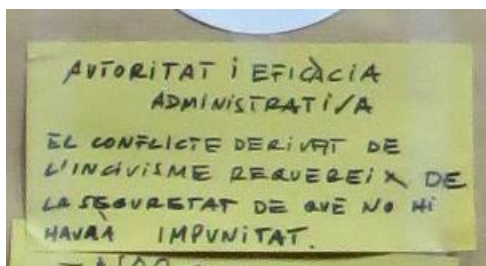 AUTORITAT I EFICÀCIA
ADMINISTRATIVA
EL CONFLICTE DERIVAT DE
L'INCIVISME REQUEREIX DE
LA SEGURETAT DE QUE NO HI
HAURÀ IMPUNITAT.